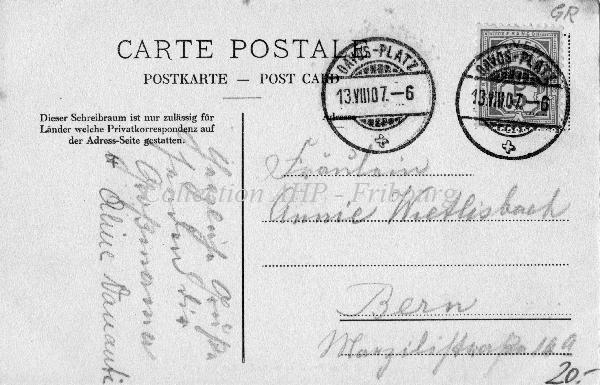 GR
CARTE POSTALE
POSTKARTE — POST CARD
DAVOS-PLATZ
13.VIII 07.–6
DAVOS-PLATZ
13.VIII 07.–6
Dieser Schreibraum ist nur zulässig für
Länder welche Privatkorrespondenz auf
der Adress-Seite gestatten.
Fräulein
Annie Wietlisbach
Collection AHP - Fribourg
Bern
Marzilistraße
20.-